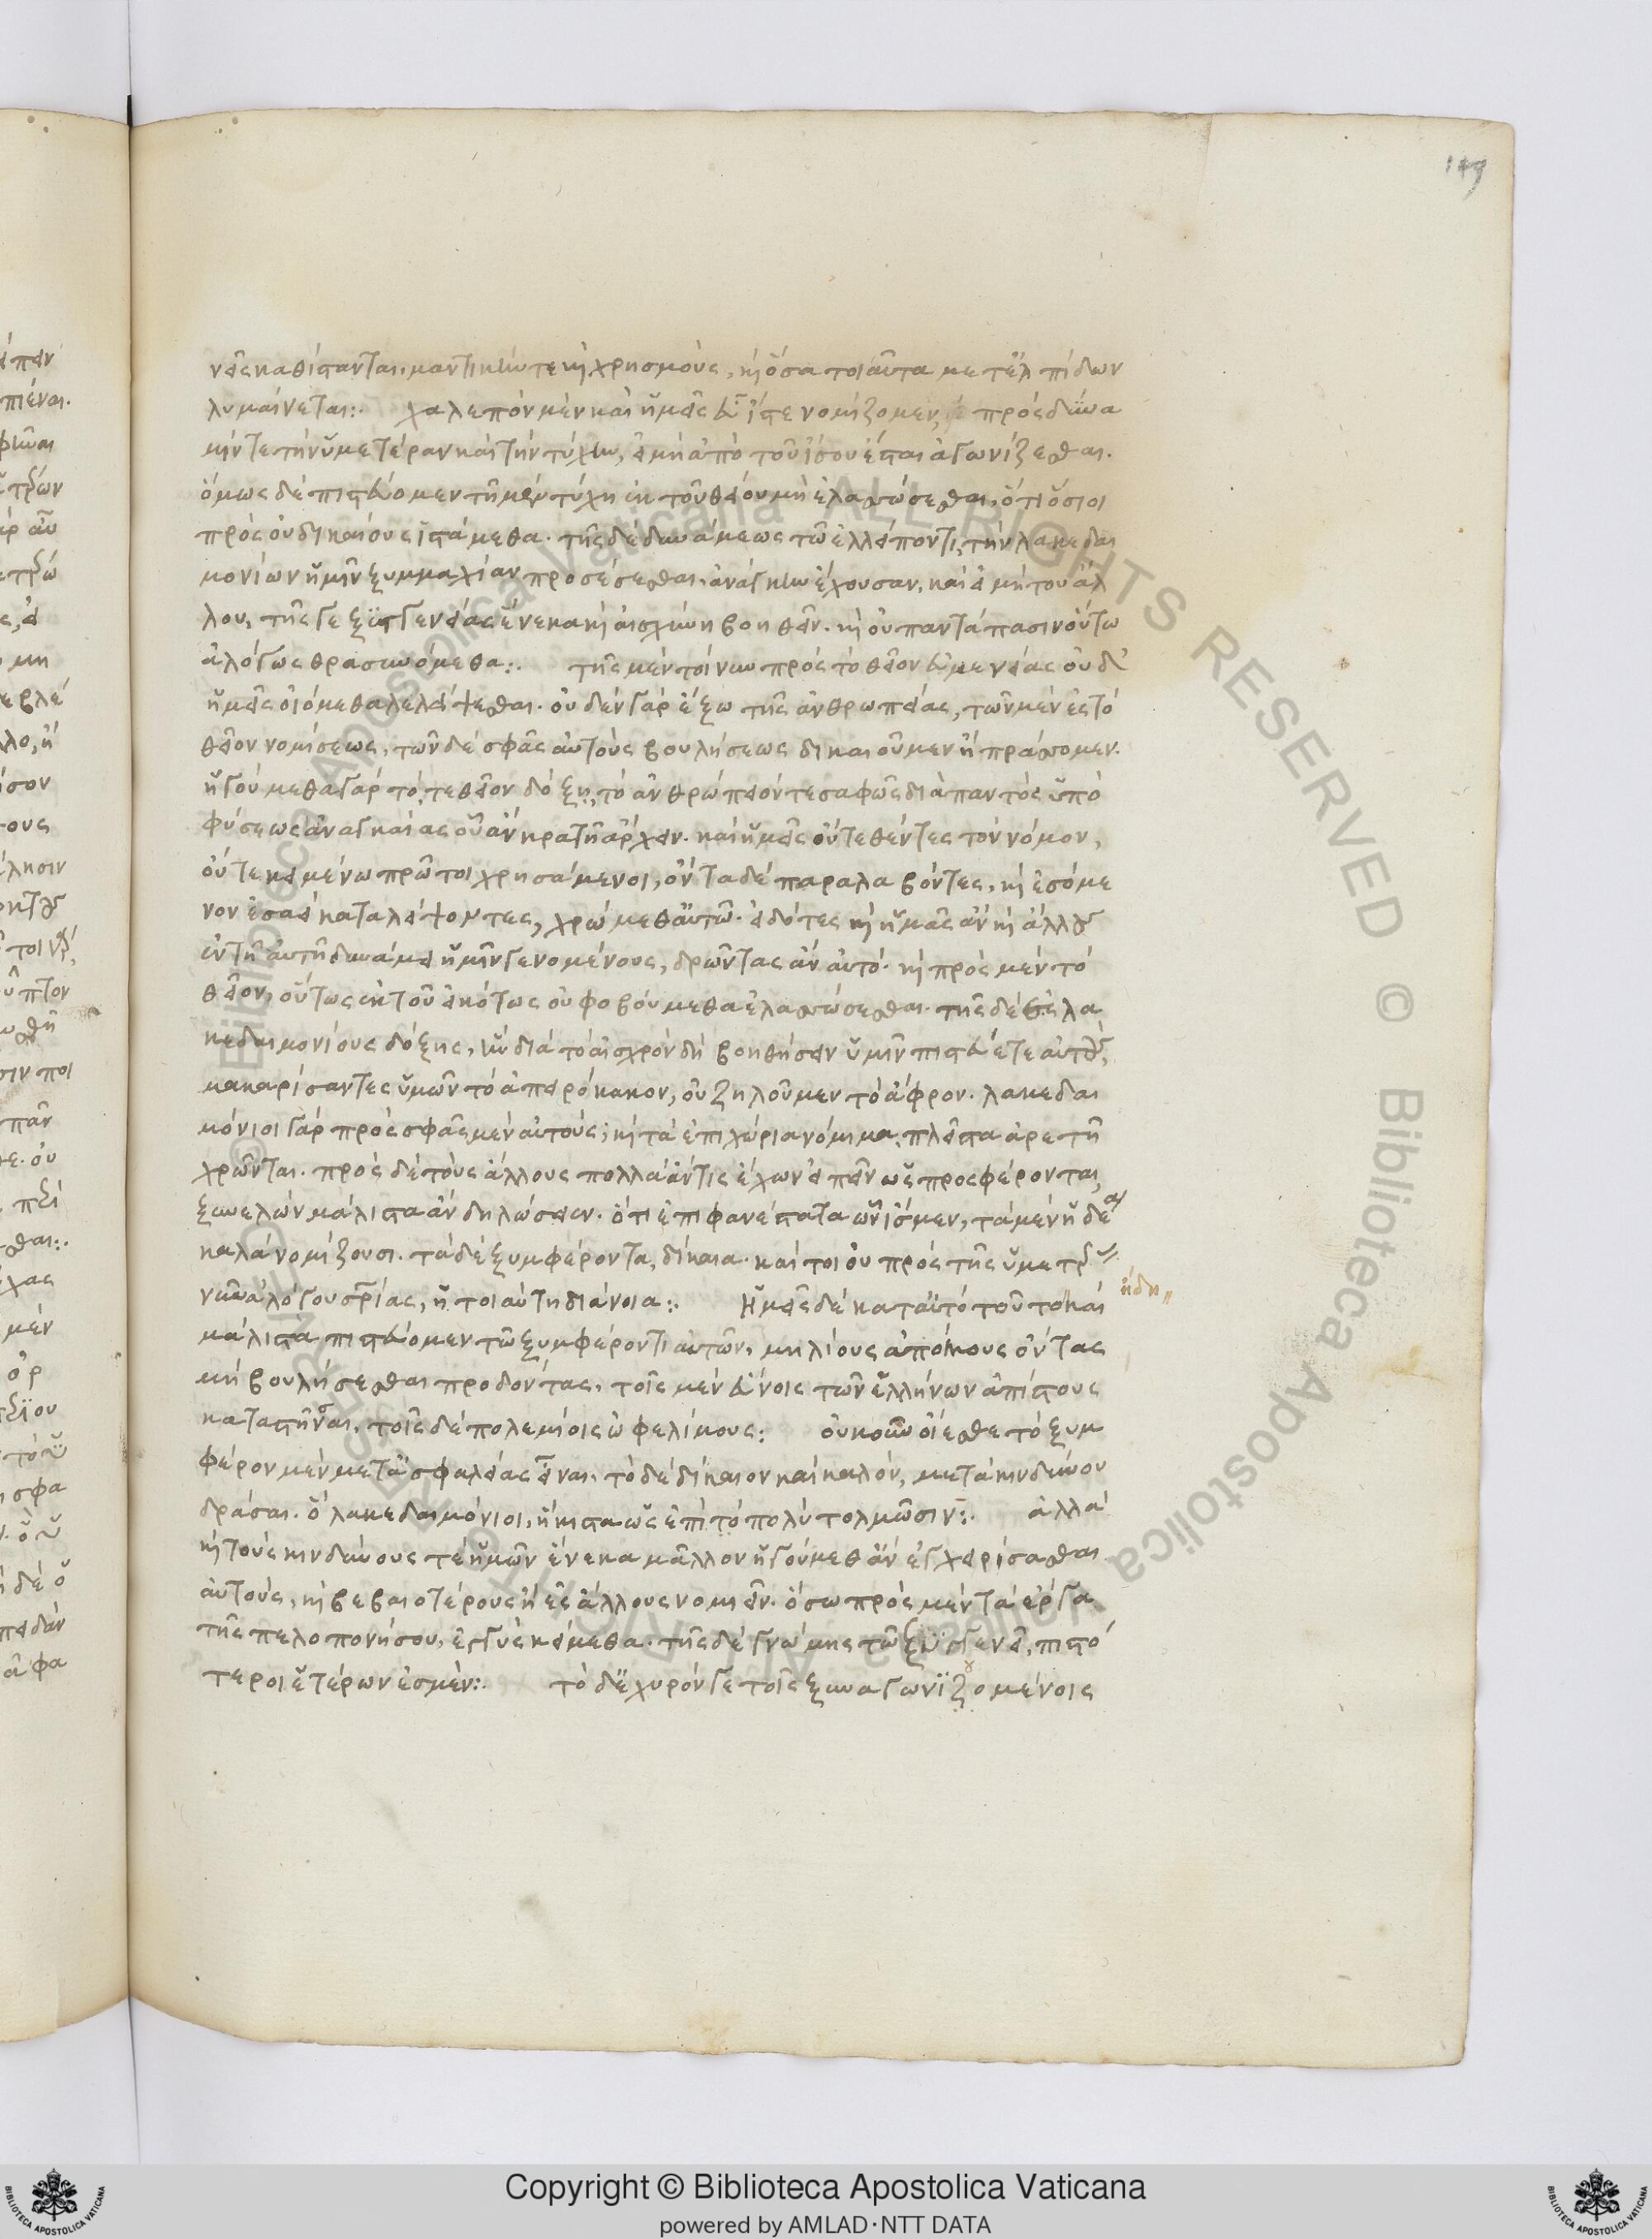 149
νεῖς καθίστανται, μαντικήν τε καὶ χρησμούς, καὶ ὅσα τοιαῦτα μετ' ἐλπίδων
λυμαίνεται:. χαλεπὸν μὲν καὶ ἡμεῖς εὖ ἴστε νομίζομεν, πρὸς δύνα
μίν τε τὴν ὑμετέραν καὶ τὴν τύχην, εἰ μὴ ἀπὸ τοῦ ἴσου ἔσται ἀγωνίζεσθαι.
ὅμως δὲ πιστεύομεν τῇ μὲν τύχῃ ἐκ τοῦ θείου μὴ ἐλασσώσεσθαι, ὅτι ὅσιοι
πρὸς οὐ δικαίους ἱστάμεθα. τῆς δὲ δυνάμεως τῷ ἐλλείποντι, τὴν λακεδαι
μονίων ἡμῖν ξυμμαχίαν προσέσεσθαι, ἀνάγκην ἔχουσαν, καὶ εἰ μή του ἄλ
λου, τῆς γε ξυγγενείας ἕνεκα καὶ αἰσχύνῃ βοηθεῖν. καὶ οὐ παντάπασιν οὕτω
ἀλόγως θρασυνόμεθα:. τῆς μὲν τοίνυν πρὸς τὸ θεῖον εὐμενείας οὐδ'
ἡμεῖς οἰόμεθα λελείψεσθαι. οὐδὲν γὰρ ἔξω τῆς ἀνθρωπείας, τῶν μὲν ἐς τὸ
θεῖον νομίσεως, τῶν δὲ σφᾶς αὐτοὺς βουλήσεως δικαιοῦμεν ἢ πράσσομεν.
ἡγούμεθα γὰρ τό, τε θεῖον δόξῃ, τὸ ἀνθρώπειόν τε σαφῶς διὰ παντὸς ὑπὸ
φύσεως ἀναγκαίας οὗ ἂν κρατῇ ἄρχειν. καὶ ἡμεῖς οὔτε θέντες τὸν νόμον,
οὔτε κειμένω πρῶτοι χρησάμενοι, ὄντα δὲ παραλαβόντες, καὶ ἐσόμε
νον ἐσαεὶ καταλείψοντες, χρώμεθα αὐτῷ. εἰδότες καὶ ὑμᾶς ἂν καὶ ἄλλους
ἐν τῇ αὐτῇ δυνάμει ἡμῖν γενομένους, δρῶντας ἂν αὐτό. καὶ πρὸς μὲν τὸ
θεῖον, οὕτως ἐκ τοῦ εἰκότως οὐ φοβούμεθα ἐλασσώσεσθαι. τῆς δὲ ἐς λα
κεδαιμονίους δόξης, ἣν διὰ τὸ αἰσχρὸν δὴ βοηθήσειν ὑμῖν πιστεύετε αὐτούς,
μακαρίσαντες ὑμῶν τὸ ἀπειρόκακον, οὐ ζηλοῦμεν τὸ ἄφρον. λακεδαι
μόνιοι γὰρ πρὸς σφᾶς μὲν αὐτούς, καὶ τὰ ἐπιχώρια νόμιμα, πλεῖστα ἀρετῇ
χρῶνται. πρὸς δὲ τοὺς ἄλλους πολλὰ ἄν τις ἔχων εἰπεῖν ὡς προσφέρονται,
ξυνελὼν μάλιστα ἂν δηλώσειεν. ὅτι ἐπιφανέστατα ὧν ἴσμεν, τὰ μὲν ἡδέα
καλὰ νομίζουσι. τὰ δὲ ξυμφέροντα, δίκαια. καί τοι οὐ πρὸς τῆς ὑμετέρας
νῦν ἀλόγου σωτηρίας, ἡ τοιαύτη διάνοια:. Ἡμεῖς δὲ κατ' αὐτὸ τοῦτο καὶ
ἤδη
μάλιστα πιστεύομεν τῷ ξυμφέροντι αὐτῶν, μηλίους ἀποίκους ὄντας
μὴ βουλήσεσθαι προδόντας, τοῖς μὲν εὔνοις τῶν ἑλλήνων ἀπίστους
καταστῆναι, τοῖς δὲ πολεμίοις ὠφελίμους: οὐκοῦν οἴεσθε τὸ ξυμ
φέρον μὲν μετ' ἀσφαλείας εἶναι, τὸ δὲ δίκαιον καὶ καλόν, μετὰ κινδύνου
δρᾶσαι. ὃ λακεδαιμόνιοι, ἥκιστα ὡς ἐπὶ τὸ πολὺ τολμῶσιν:. ἀλλὰ
καὶ τοὺς κινδύνους τε ἡμῶν ἕνεκα μᾶλλον ἡγούμεθ' ἂν ἐγχειρίσασθαι
αὐτούς, καὶ βεβαιοτέρους ἢ ἐς ἄλλους νομιεῖν. ὅσω πρὸς μὲν τὰ ἔργα
τῆς πελοπονήσου, ἐγγὺς κείμεθα. τῆς δὲ γνώμης τῷ ξυγγενεῖ, πιστό
τεροι ἑτέρων ἐσμέν:. τὸ δ' ἐχυρόν γε τοῖς ξυναγωνιζομένοις
Copyright © Biblioteca Apostolica Vaticana
powered by AMLAD·NTT DATA
© Biblioteca Apostolica Vaticana ALL RIGHTS RESERVED